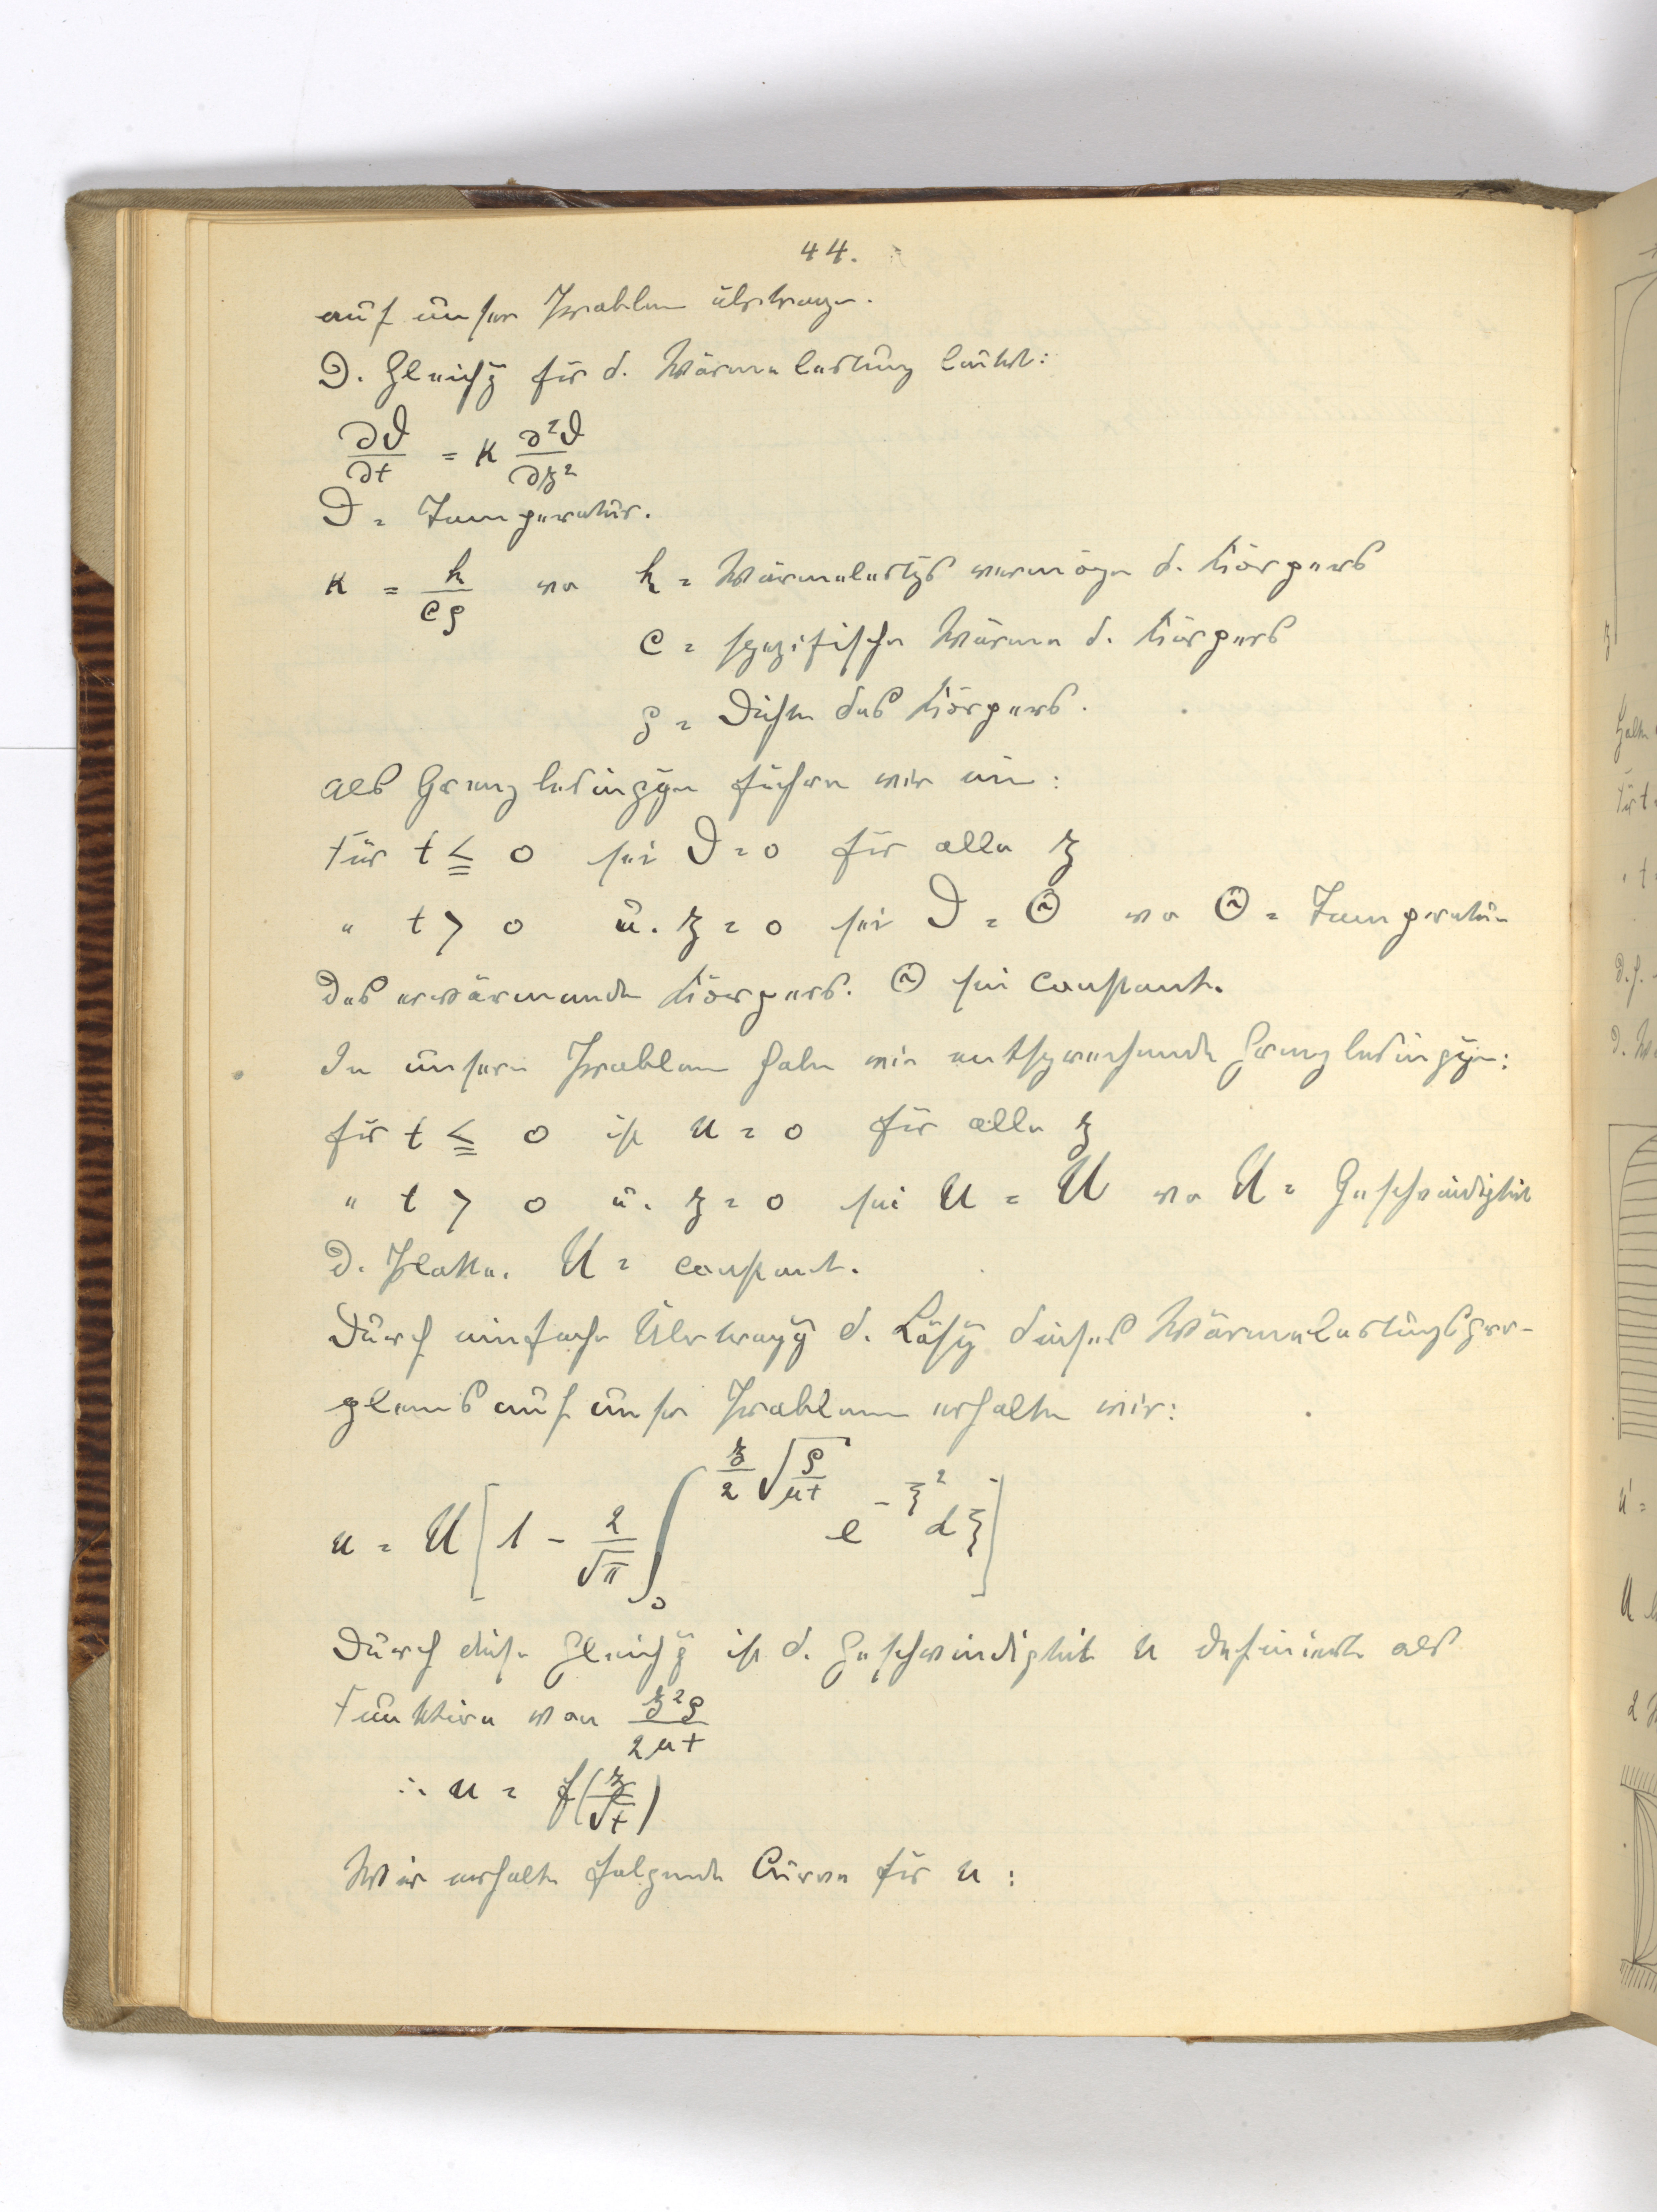 44.
auf unser Problem übertragen.
D. Gleichg für d. Wärmeleitung lautet:
∂ϑ/∂t = κ ∂²ϑ/∂z²
ϑ = Temperatur.
κ = k/cρ wo k = Wärmeleitgsvermögen d. Körpers
c = spezifische Wärme d. Körpers
ρ = Dichte des Körpers.
Als Grenzbedingungen führen wir ein:
Für t ≦ 0 sei ϑ = 0 für alle z
" t > 0 u. z = 0 sei ϑ = Θ wo Θ = Temperatur
des erwärmenden Körpers. Θ sei constant.
In unserm Problem haben wir entsprechende Grenzbedingungen:
für t ≦ 0 ist u = 0 für alle z
" t > 0 u. z = 0 sei u = U wo U = Geschwindigkeit
d. Platte. U = constant.
Durch einfache Übertragg d. Lösg dieses Wärmeleitungspro-
blems auf unser Problem erhalten wir:
u = U [1 - 2/√π ∫₀^(z/2 √(ρ/μt)) e^(-ξ²) dξ]
Durch diese Gleichg ist d. Geschwindigkeit u definiert als
Funktion von z²ρ/2μt
∴ u = f(z/√t)
Wir erhalten folgende Curve für u: